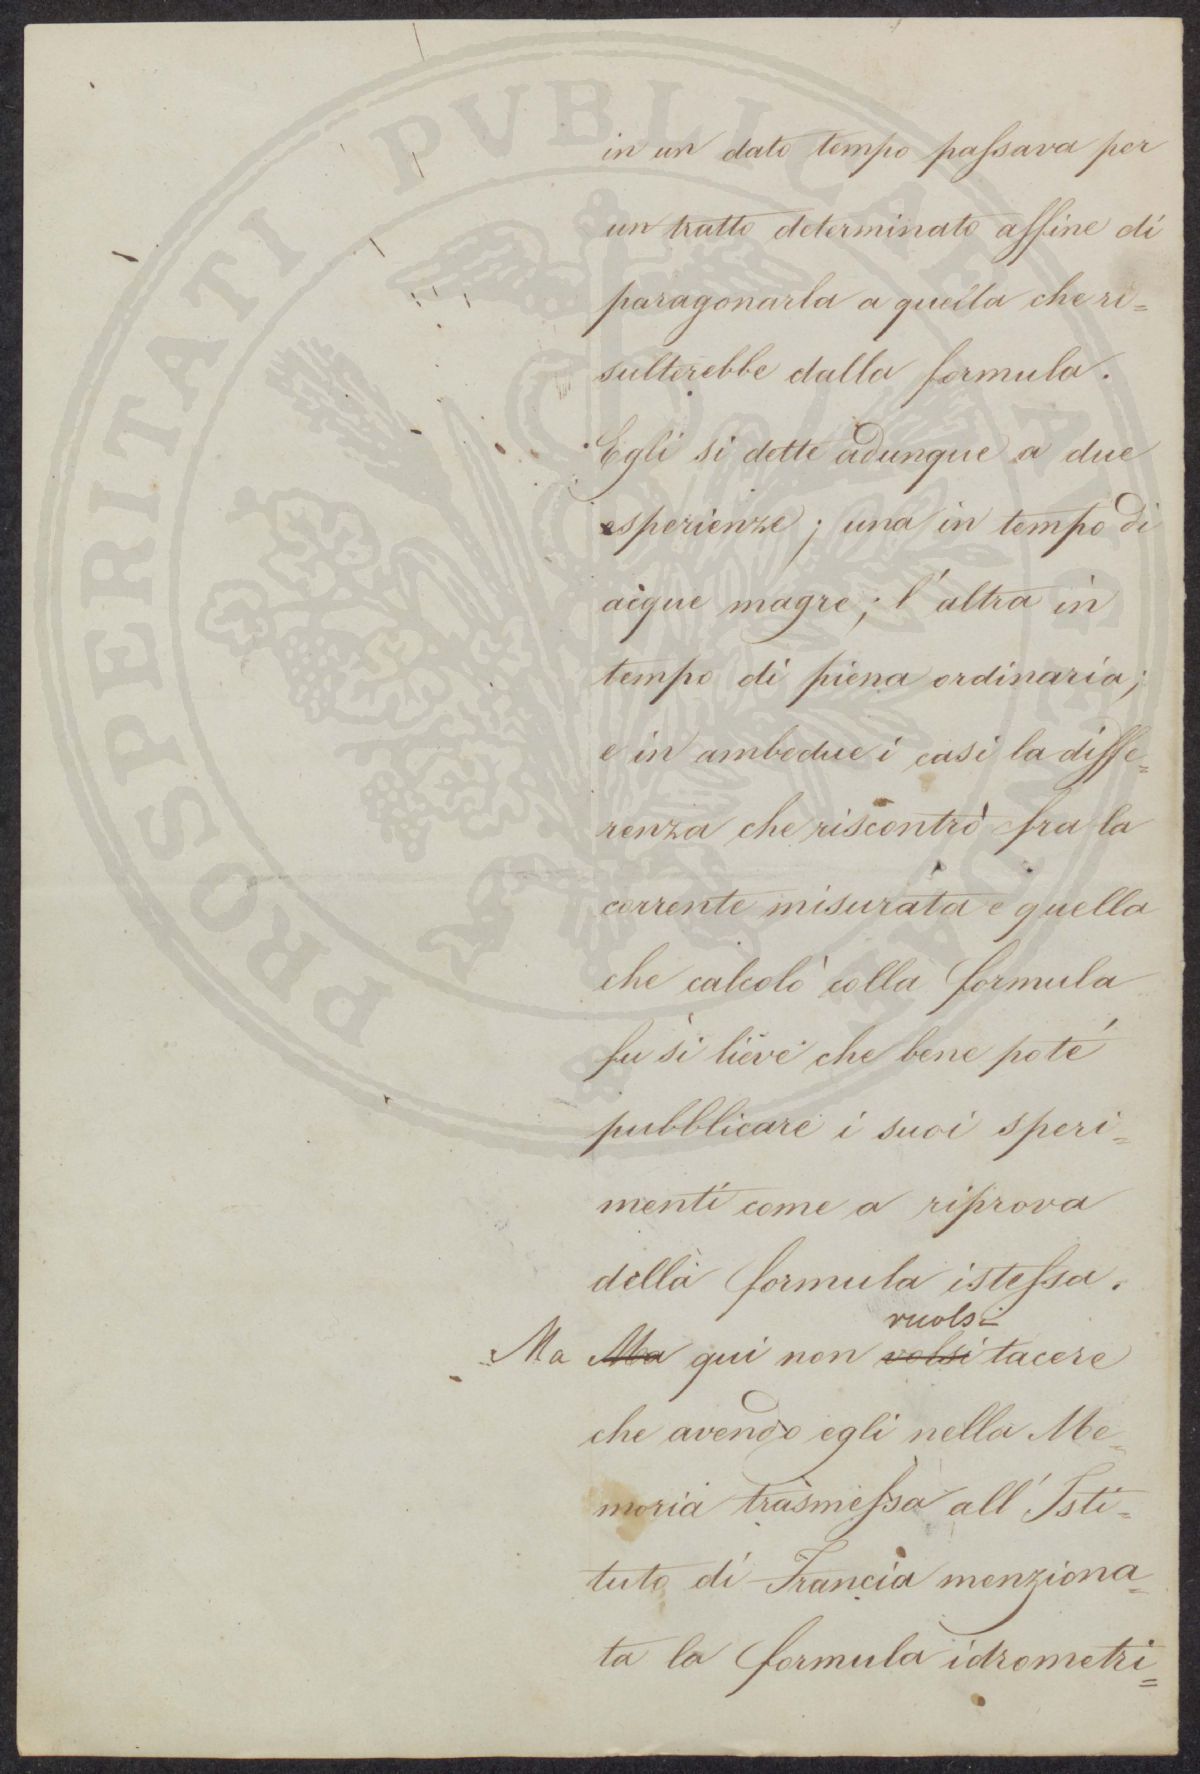 PROSPERITATI PVBLICAE AVGENDAE
in un dato tempo passava per
un tratto determinato affine di
paragonarla a quella che ri=
sulterebbe dalla formula.
Egli si dette adunque a due
esperienze; una in tempo di
acque magre; l'altra in
tempo di piena ordinaria;
e in ambedue i casi la diffe=
renza che riscontrò fra la
corrente misurata e quella
che calcolò colla formula
fu sì lieve che bene poté
pubblicare i suoi speri=
menti come a riprova
della formula istessa.
vuolsi
Ma Ma qui non volsi tacere
che avendo egli nella Me=
moria trasmessa all'Isti=
tuto di Francia menziona=
ta la formula idrometri=